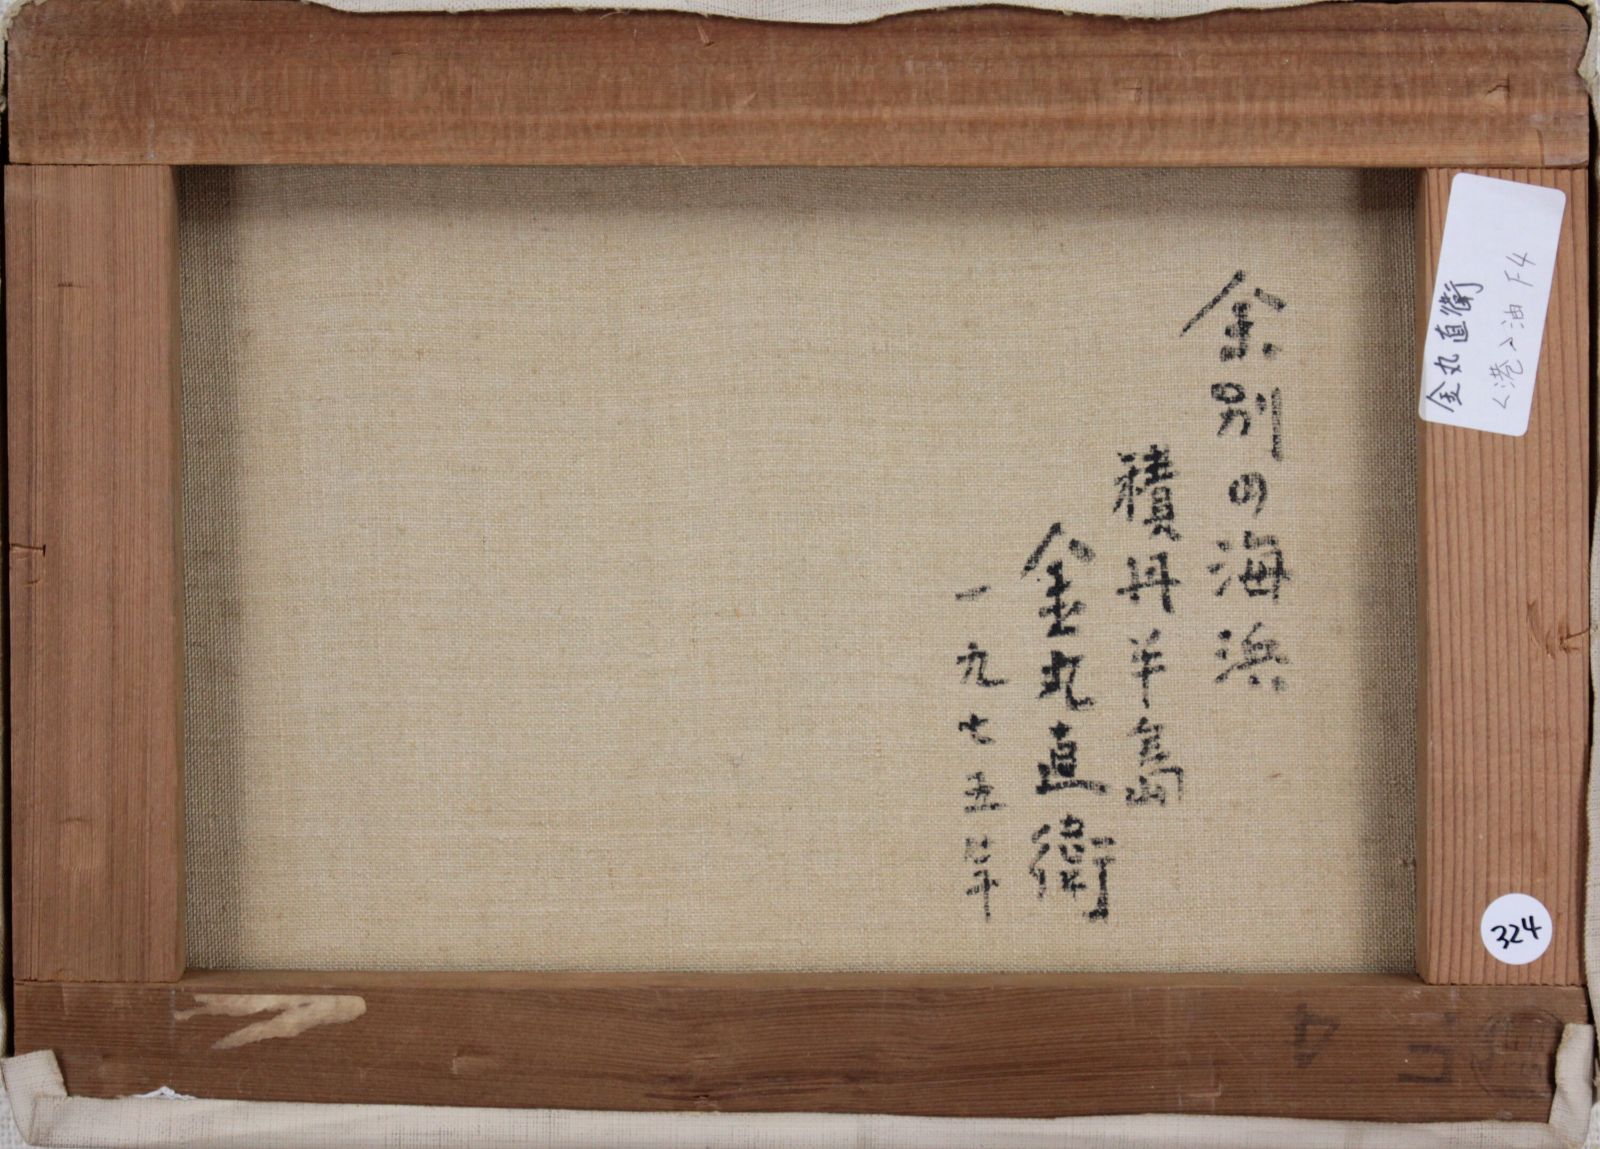 余別の海浜
積丹半島
金丸直衛
一九七五年
金丸直衛
<港>油 F4
324